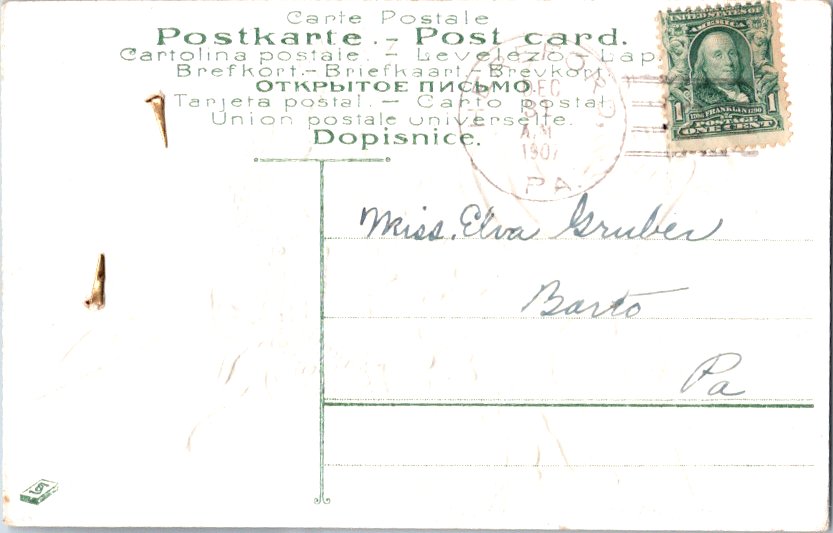 Carte Postale
Postkarte. - Post card.
Cartolina postale. - Levelező-Lap.
Brefkort. - Briefkaart. - Brevkort.
ОТКРЫТОЕ ПИСЬМО.
Tarjeta postal. - Carto postal.
Union postale universelle.
Dopisnice.
UNITED STATES OF
AMERICA
1 FRANKLIN 1
POSTAGE
ONE CENT
DEC
31
A.M
1907
PA.
Miss. Elva Gruber
Barto
Pa